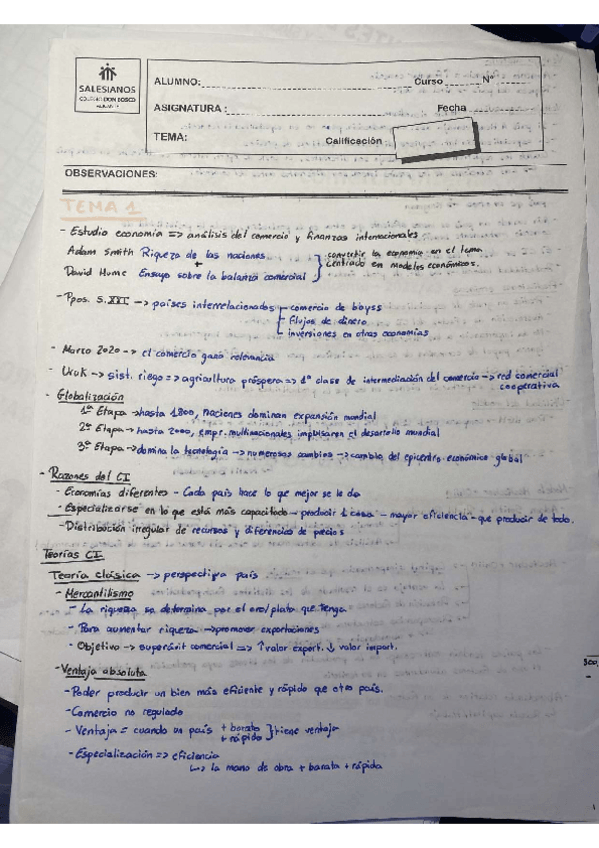 SALESIANOS
COLEGIO DON BOSCO
ALUMNO: Curso Nº
ASIGNATURA: Fecha
TEMA: Calificación
OBSERVACIONES:
TEMA 1
- Estudio economía => análisis del comercio y finanzas internacionales
Adam Smith Riqueza de las naciones
+
David Hume Ensayo sobre la balanza comercial
convertir la economía en el tema
centrado en modelos económicos.
- Ppos. S.XXI -> países interrelacionados - comercio de byss
- flujos de dinero
- inversiones en otras economías
- Marzo 2020 -> el comercio gana relevancia
- Uruk -> sist. riego => agricultura próspera => 1ª clase de intermediación del comercio -> red comercial
cooperativa
- Globalización
1ª Etapa -> hasta 1800, naciones dominan expansión mundial
2ª Etapa -> hasta 2000, empr. multinacionales impulsaron el desarrollo mundial
3ª Etapa -> domina la tecnología -> numerosos cambios -> cambio del epicentro económico global
- Razones del CI
- Economías diferentes - Cada país hace lo que mejor se le da
- Especializarse en lo que está más capacitado - producir 1 cosa - mayor eficiencia - que producir de todo.
- Distribución irregular de recursos y diferencias de precios
Teorías CI
Teoría clásica -> perspectiva país
- Mercantilismo
- La riqueza se determina por el oro/plata que tenga
- Para aumentar riqueza -> promover exportaciones
- Objetivo -> superávit comercial => ↑ valor export. ↓ valor import.
- Ventaja absoluta
- Poder producir un bien más eficiente y rápido que otro país.
- Comercio no regulado
- Ventaja = cuando un país + barato + rápido } tiene ventaja
- Especialización => eficiencia
↳ la mano de obra + barata + rápida